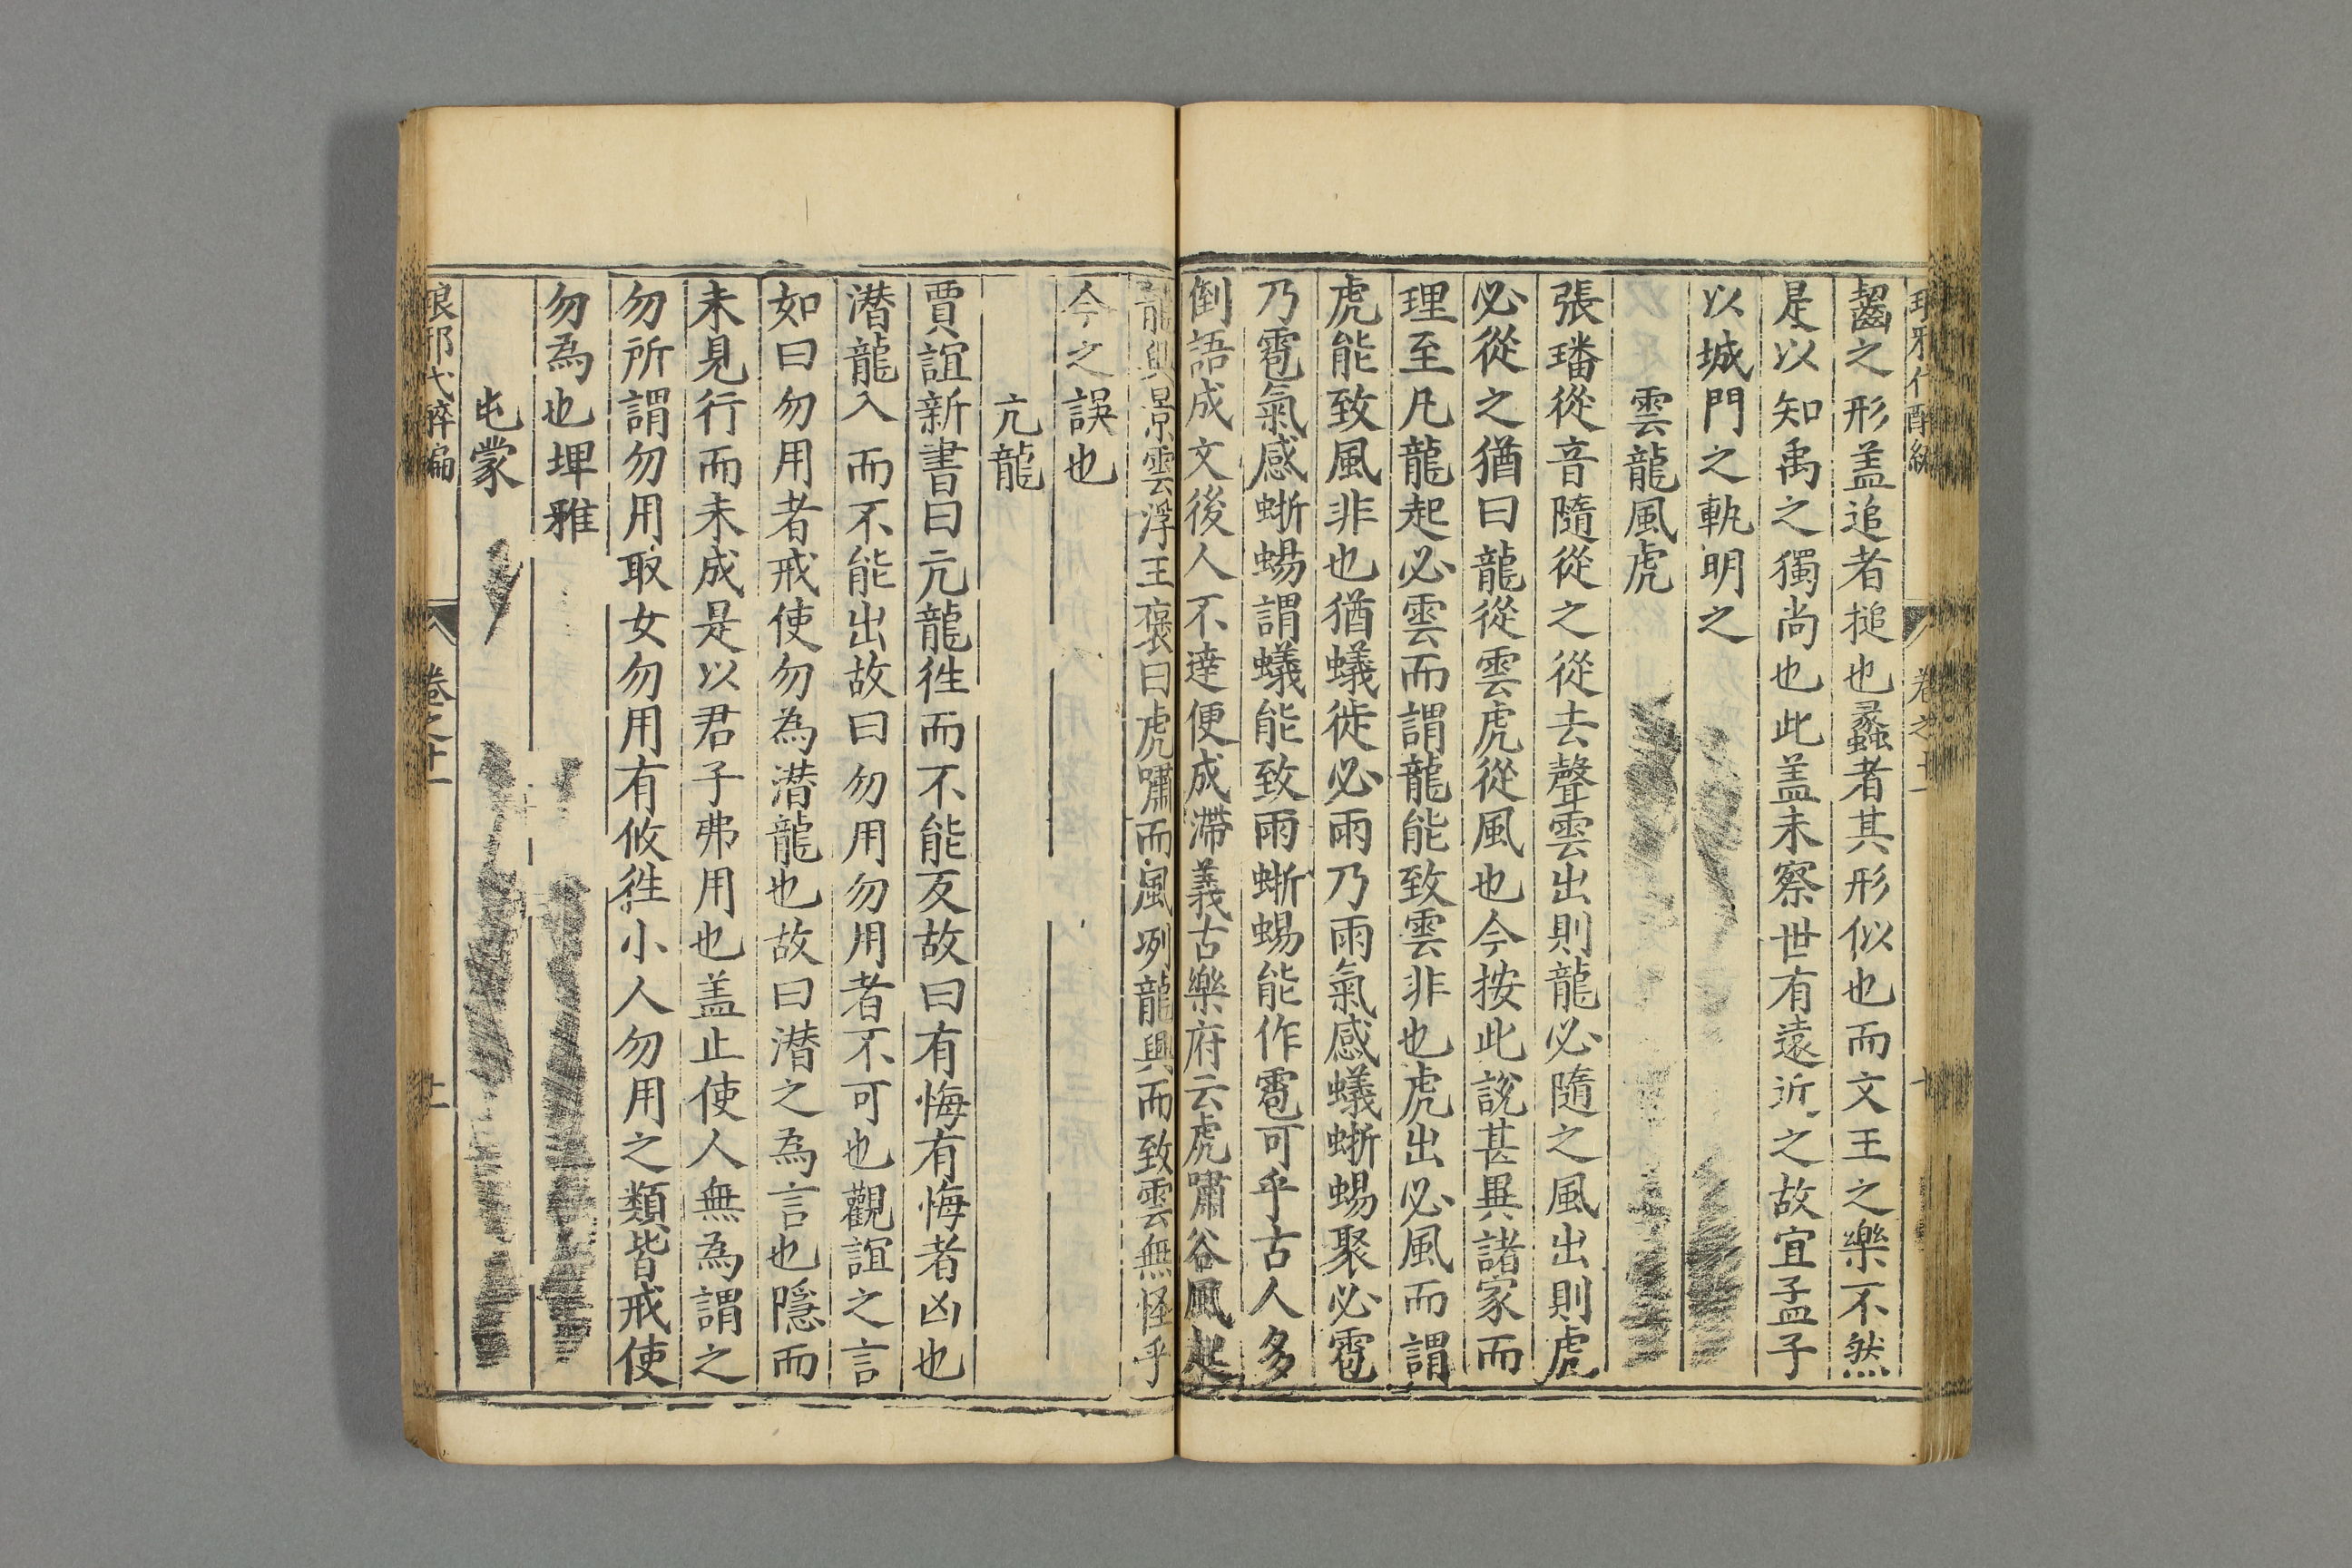 齧之形盖追者搥也蠡者其形似也而文王之樂不然
是以知禹之獨尚也此盖未察世有遠近之故宜孟子
以城門之軌明之
雲龍風虎
張璠從音隨從之從去聲雲出則龍必隨之風出則虎
必從之猶曰龍從雲虎從風也今按此說甚異諸家而
理至凡龍起必雲而謂龍能致雲非也虎出必風而謂
虎能致風非也猶蟻徙必雨乃雨氣感蟻蜥蜴聚必雹
乃雹氣感蜥蜴謂蟻能致雨蜥蜴能作雹可乎古人多
倒語成文後人不達便成滯義古樂府云虎嘯谷風起
龍興景雲浮王褒曰虎嘯而風冽龍興而致雲無怪乎
今之誤也
亢龍
賈誼新書曰亢龍徃而不能反故曰有悔有悔者凶也
潛龍入而不能出故曰勿用勿用者不可也觀誼之言
如曰勿用者戒使勿為潛龍也故曰潛之為言也隱而
未見行而未成是以君子弗用也盖止使人無為謂之
勿所謂勿用取女勿用有攸徃小人勿用之類皆戒使
勿為也埤雅
屯蒙
琅邪代醉編 卷之十一